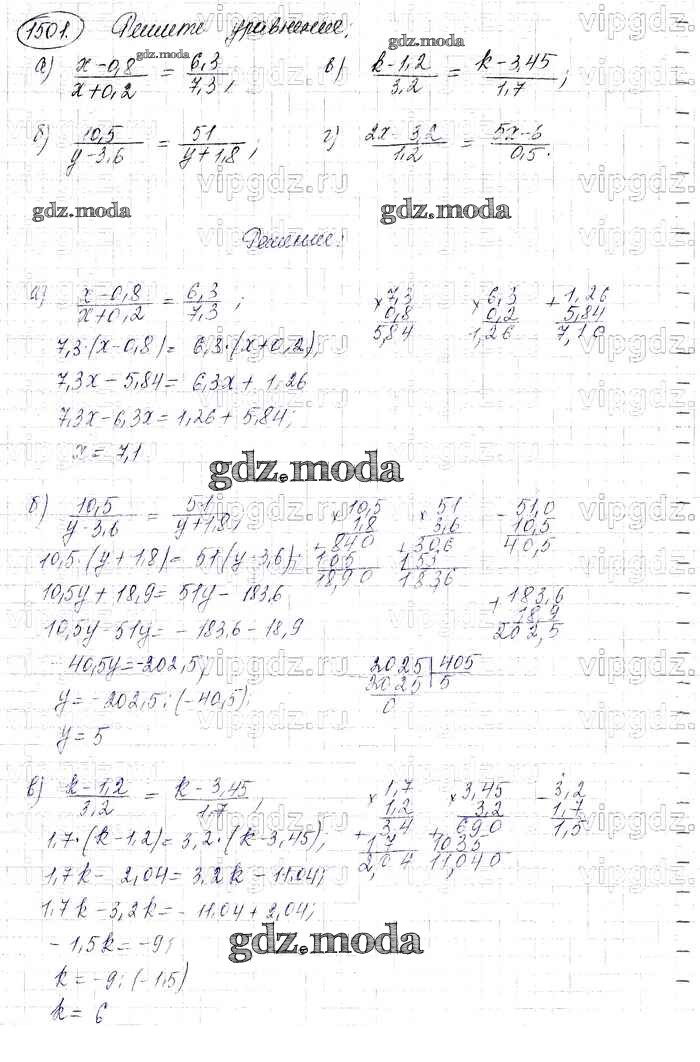 1501. Решите уравнение:
а) x-0,8 / x+0,2 = 6,3 / 7,3; в) k-1,2 / 3,2 = k-3,45 / 1,7;
б) 10,5 / y-3,6 = 51 / y+1,8; г) 2x-3,2 / 1,2 = 5x-6 / 0,5.
Решение:
а) x-0,8 / x+0,2 = 6,3 / 7,3;
7,3·(x-0,8) = 6,3·(x+0,2);
7,3x - 5,84 = 6,3x + 1,26
7,3x - 6,3x = 1,26 + 5,84;
x = 7,1
× 7,3
0,8
5,84
× 6,3
0,2
1,26
+ 1,26
5,84
7,10
gdz.moda
б) 10,5 / y-3,6 = 51 / y+1,8;
10,5·(y+1,8) = 51(y-3,6);
10,5y + 18,9 = 51y - 183,6
10,5y - 51y = -183,6 - 18,9
-40,5y = -202,5;
y = -202,5 : (-40,5);
y = 5
× 10,5
1,8
+ 840
105
18,90
× 51
3,6
+ 30,6
153
183,6
- 51,0
10,5
40,5
+ 183,6
18,9
202,5
2025 | 405
2025 | 5
0
в) k-1,2 / 3,2 = k-3,45 / 1,7;
1,7·(k-1,2) = 3,2·(k-3,45);
1,7k - 2,04 = 3,2k - 11,04;
1,7k - 3,2k = -11,04 + 2,04;
-1,5k = -9;
k = -9 : (-1,5)
k = 6
× 1,7
1,2
+ 3,4
17
2,04
× 3,45
3,2
+ 690
1035
11,040
- 3,2
1,7
1,5
gdz.moda
vipgdz.ru